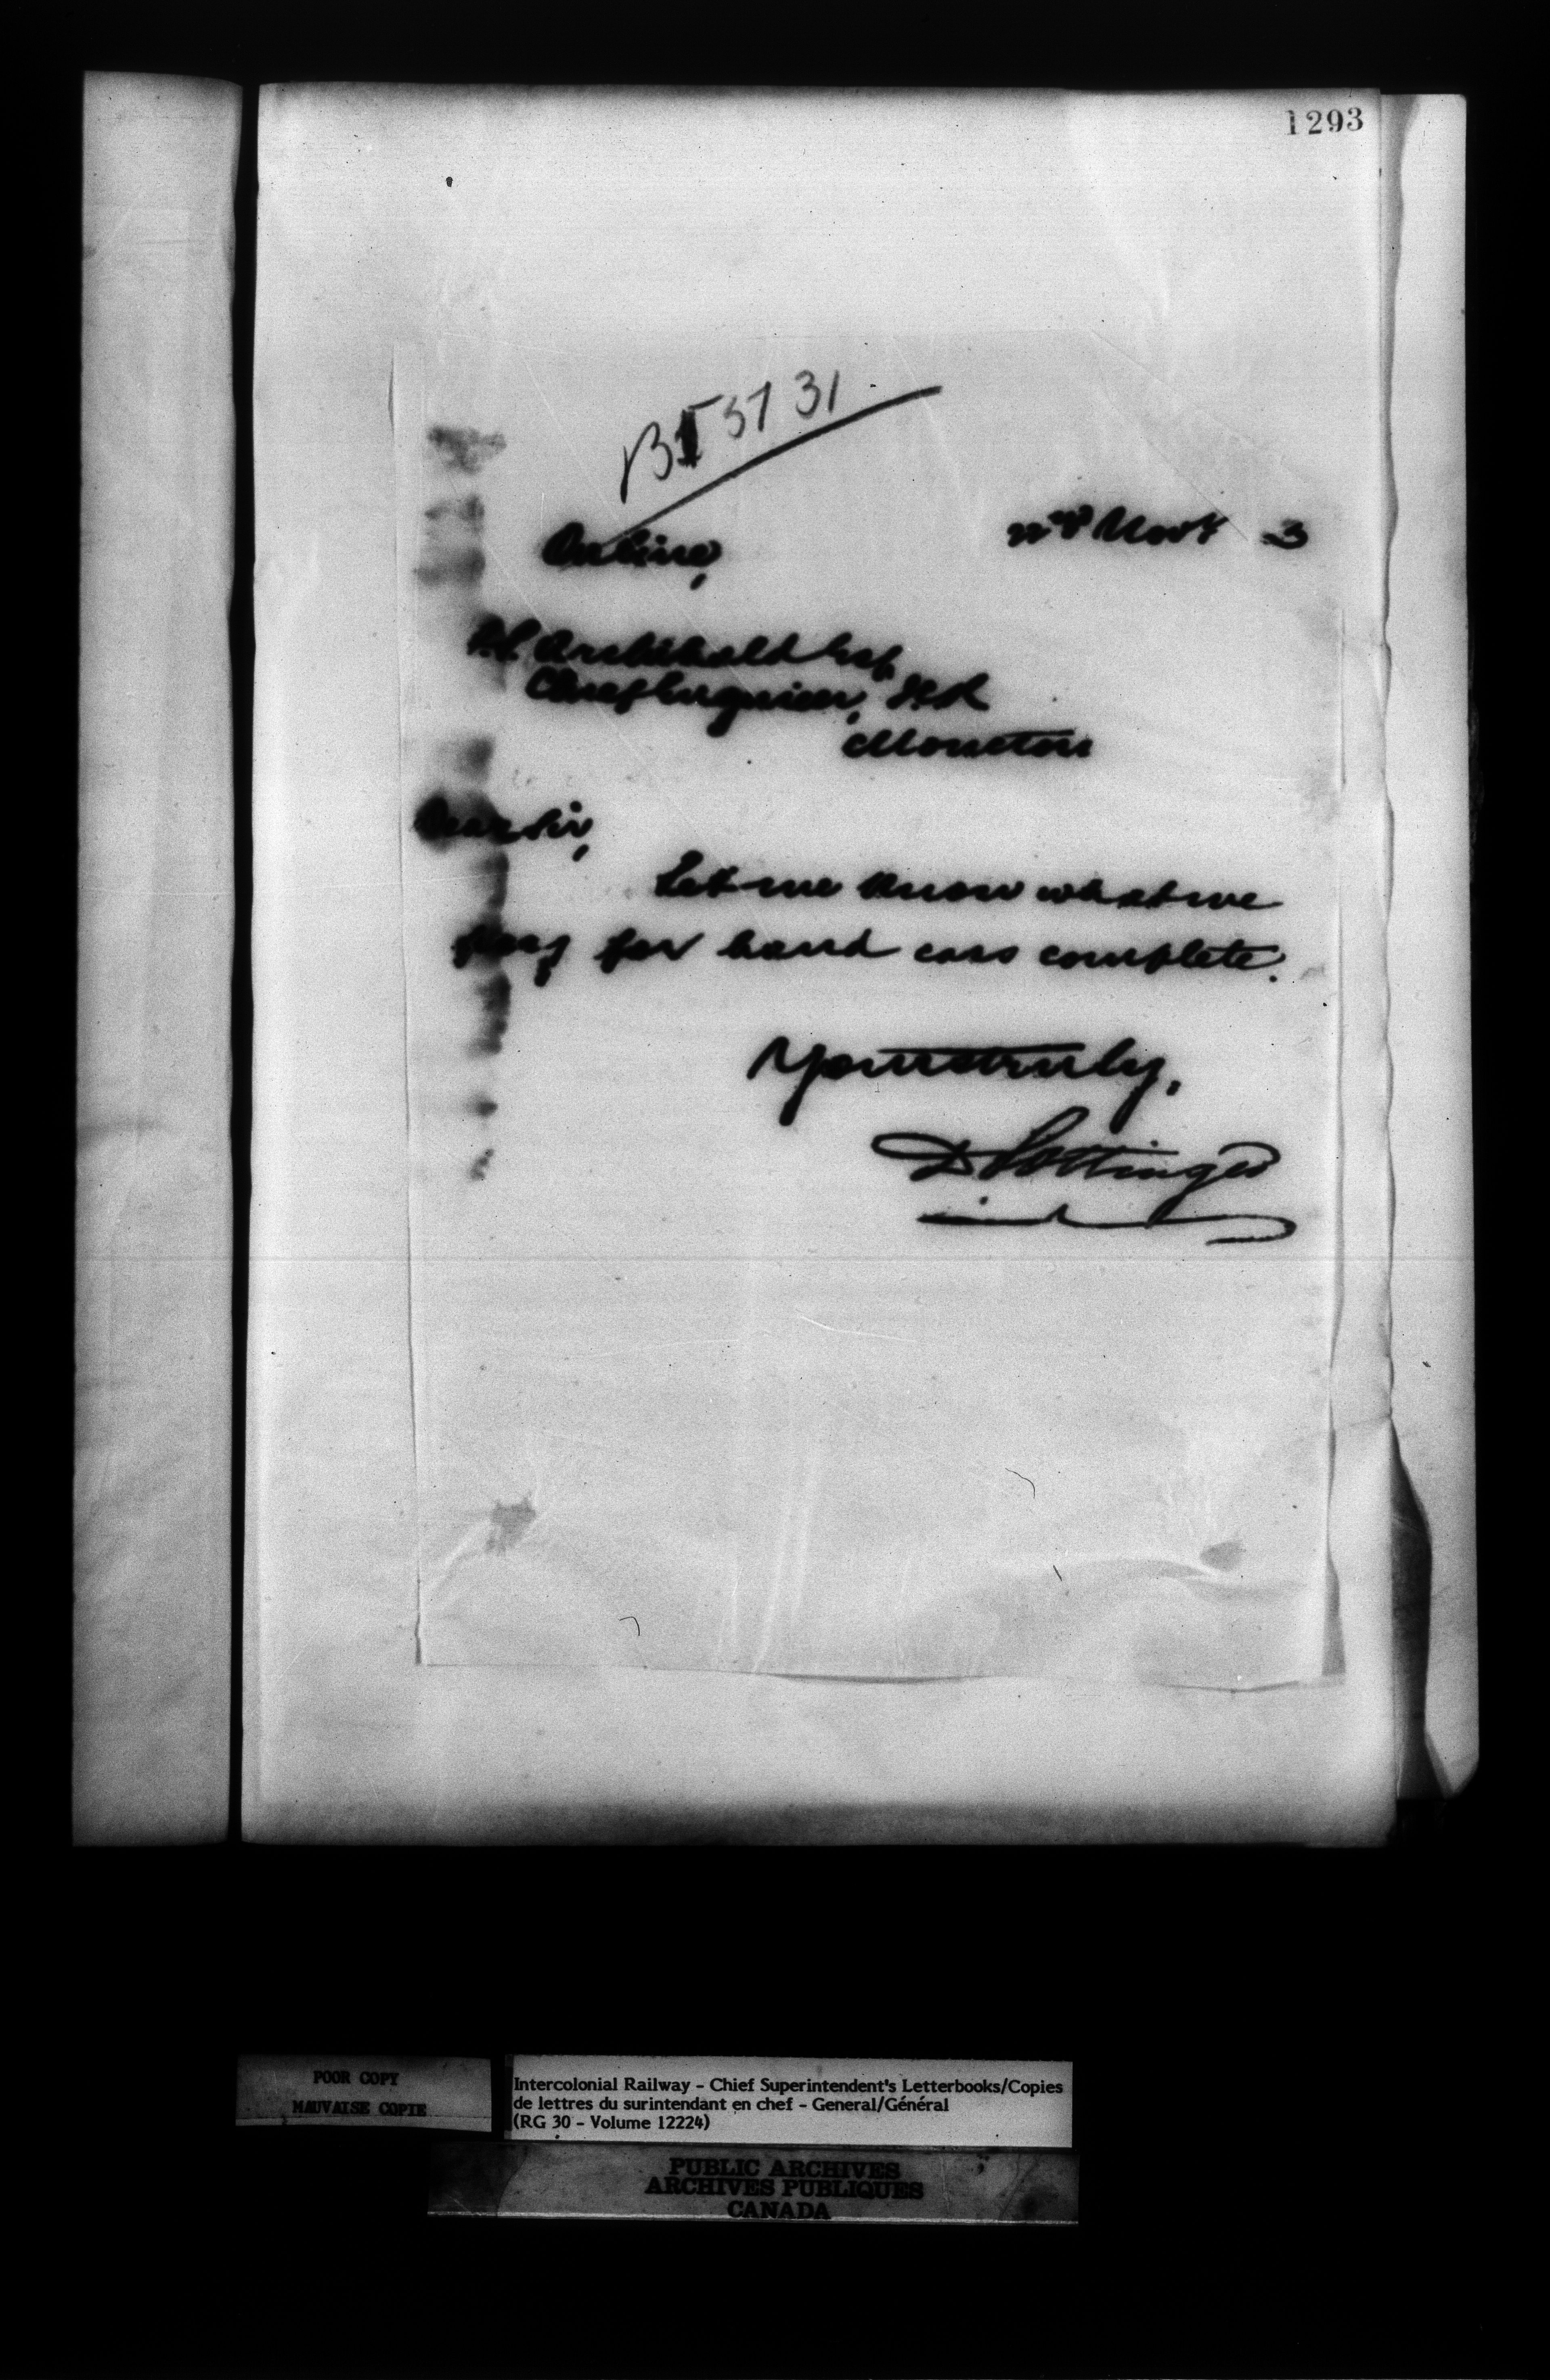 1293
3731
On line,
22nd Novr 3
P.S. Archibald Esq,
Chief Engineer, I.C.R
Moncton
Dear Sir,
Let me know what we
pay for hand cars complete.
Yours truly,
D Pottinger
POOR COPY
MAUVAISE COPIE
Intercolonial Railway - Chief Superintendent's Letterbooks/Copies
de lettres du surintendant en chef - General/Général
(RG 30 - Volume 12224)
PUBLIC ARCHIVES
ARCHIVES PUBLIQUES
CANADA